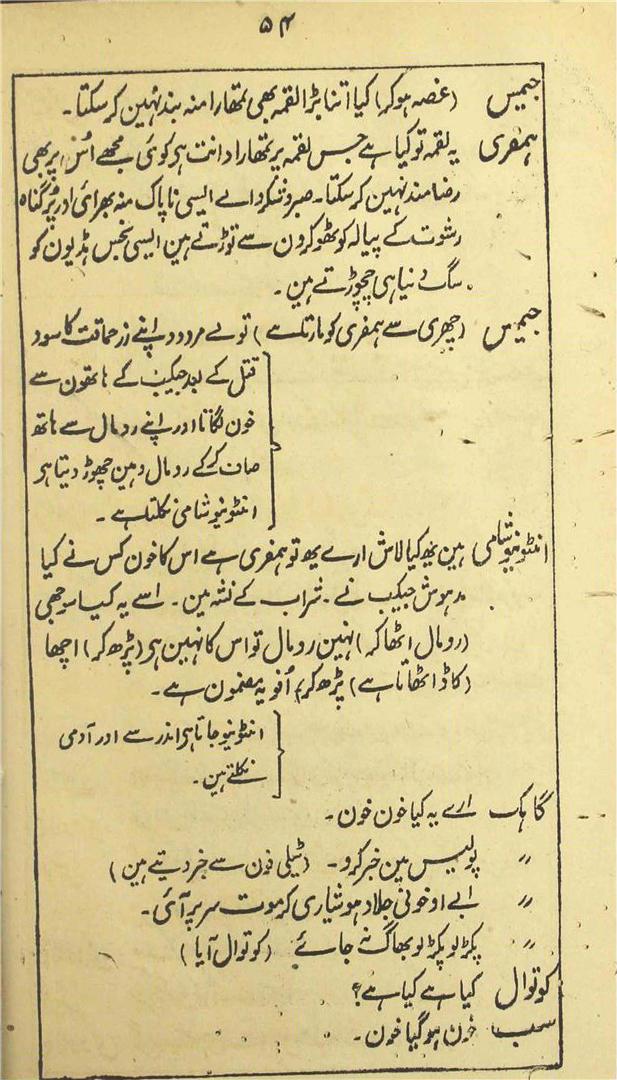 ۵۴
جیمس (غصہ ہوکر) کیا اتنا بڑا لقمہ بھی تمھارا منہ بند نہین کرسکتا۔
ہمفری یہ لقمہ تو کیا ہے جس لقمہ پر تمھارا دانت ہی کوئی مجھے اُس پر بھی
رضامند نہین کرسکتا۔ صبر و شکر والے ایسی ناپاک منہ بھرائی اور پُر گناہ
رشوت کے پیالہ کو ٹھوکرون سے توڑتے ہین ایسی نجس ہڈیون کو
سگ دنیا ہی چچوڑتے ہین۔
جیمس (چھری سے ہمفری کو مارتا ہے) تولے مردود اپنے زر حماقت کا سود
قتل کے بعد جیکب کے ہاتھون سے
خون لگاتا اور اپنے رومال سے ہاتھ
صاف کرکے رومال وہین چھوڑ دیتا ہی
انٹونیو شامی نکلتا ہے۔
انٹونیو شامی ہین یہ کیا لاش ارے یہ تو ہمفری ہے اس کا خون کس نے کیا
مدہوش جیکب نے۔ شراب کے نشہ مین۔ اسے یہ کیا سوجھی
(رومال اٹھاکر) نہین رومال تو اس کا نہین ہی (پڑھ کر) اچھا
(کاڈ اٹھاتا ہے) پڑھ کر) اُفو یہ مضمون ہے۔
انٹونیو جاتا ہی اندر سے اور آدمی
نکلتے ہین۔
گاہک ارے یہ کیا خون خون۔
〃 پولیس مین خبر کرو۔ (ٹیلی فون سے خبر دیتے ہین)
〃 ابے او خونی جلاد ہوشیاری کر موت سر پر آئی۔
〃 پکڑلو پکڑلو بھاگ نہ جائے (کوتوال آیا)
کوتوال کیا ہے کیا ہے؟
سب خون ہوگیا خون۔